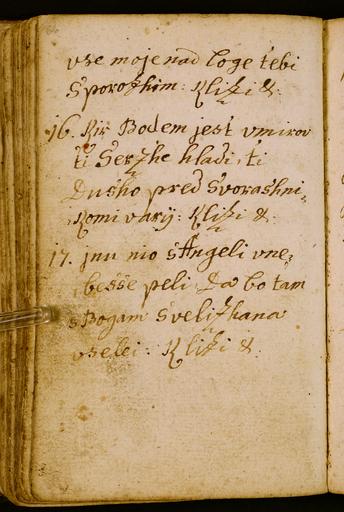 vse moje nad loge tebi
Sporozhim: Klizi &.
16. Kir Bodem jest vmirov
ti Serzhe hladi, ti
Dusho pred Svorashni,
Komi varij: Klizi &.
17. jnu nio sAngeli vne,
besse peli, Da bo tam
s Bogam Svelizhana
vselei: Klizi &.